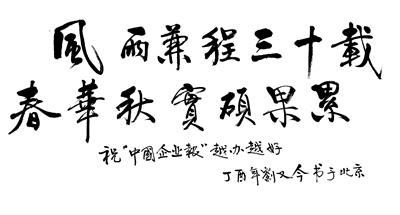 風雨兼程三十載
春華秋實碩果累
祝"中國企业報"越办越好
丁酉年劉又今书于北京